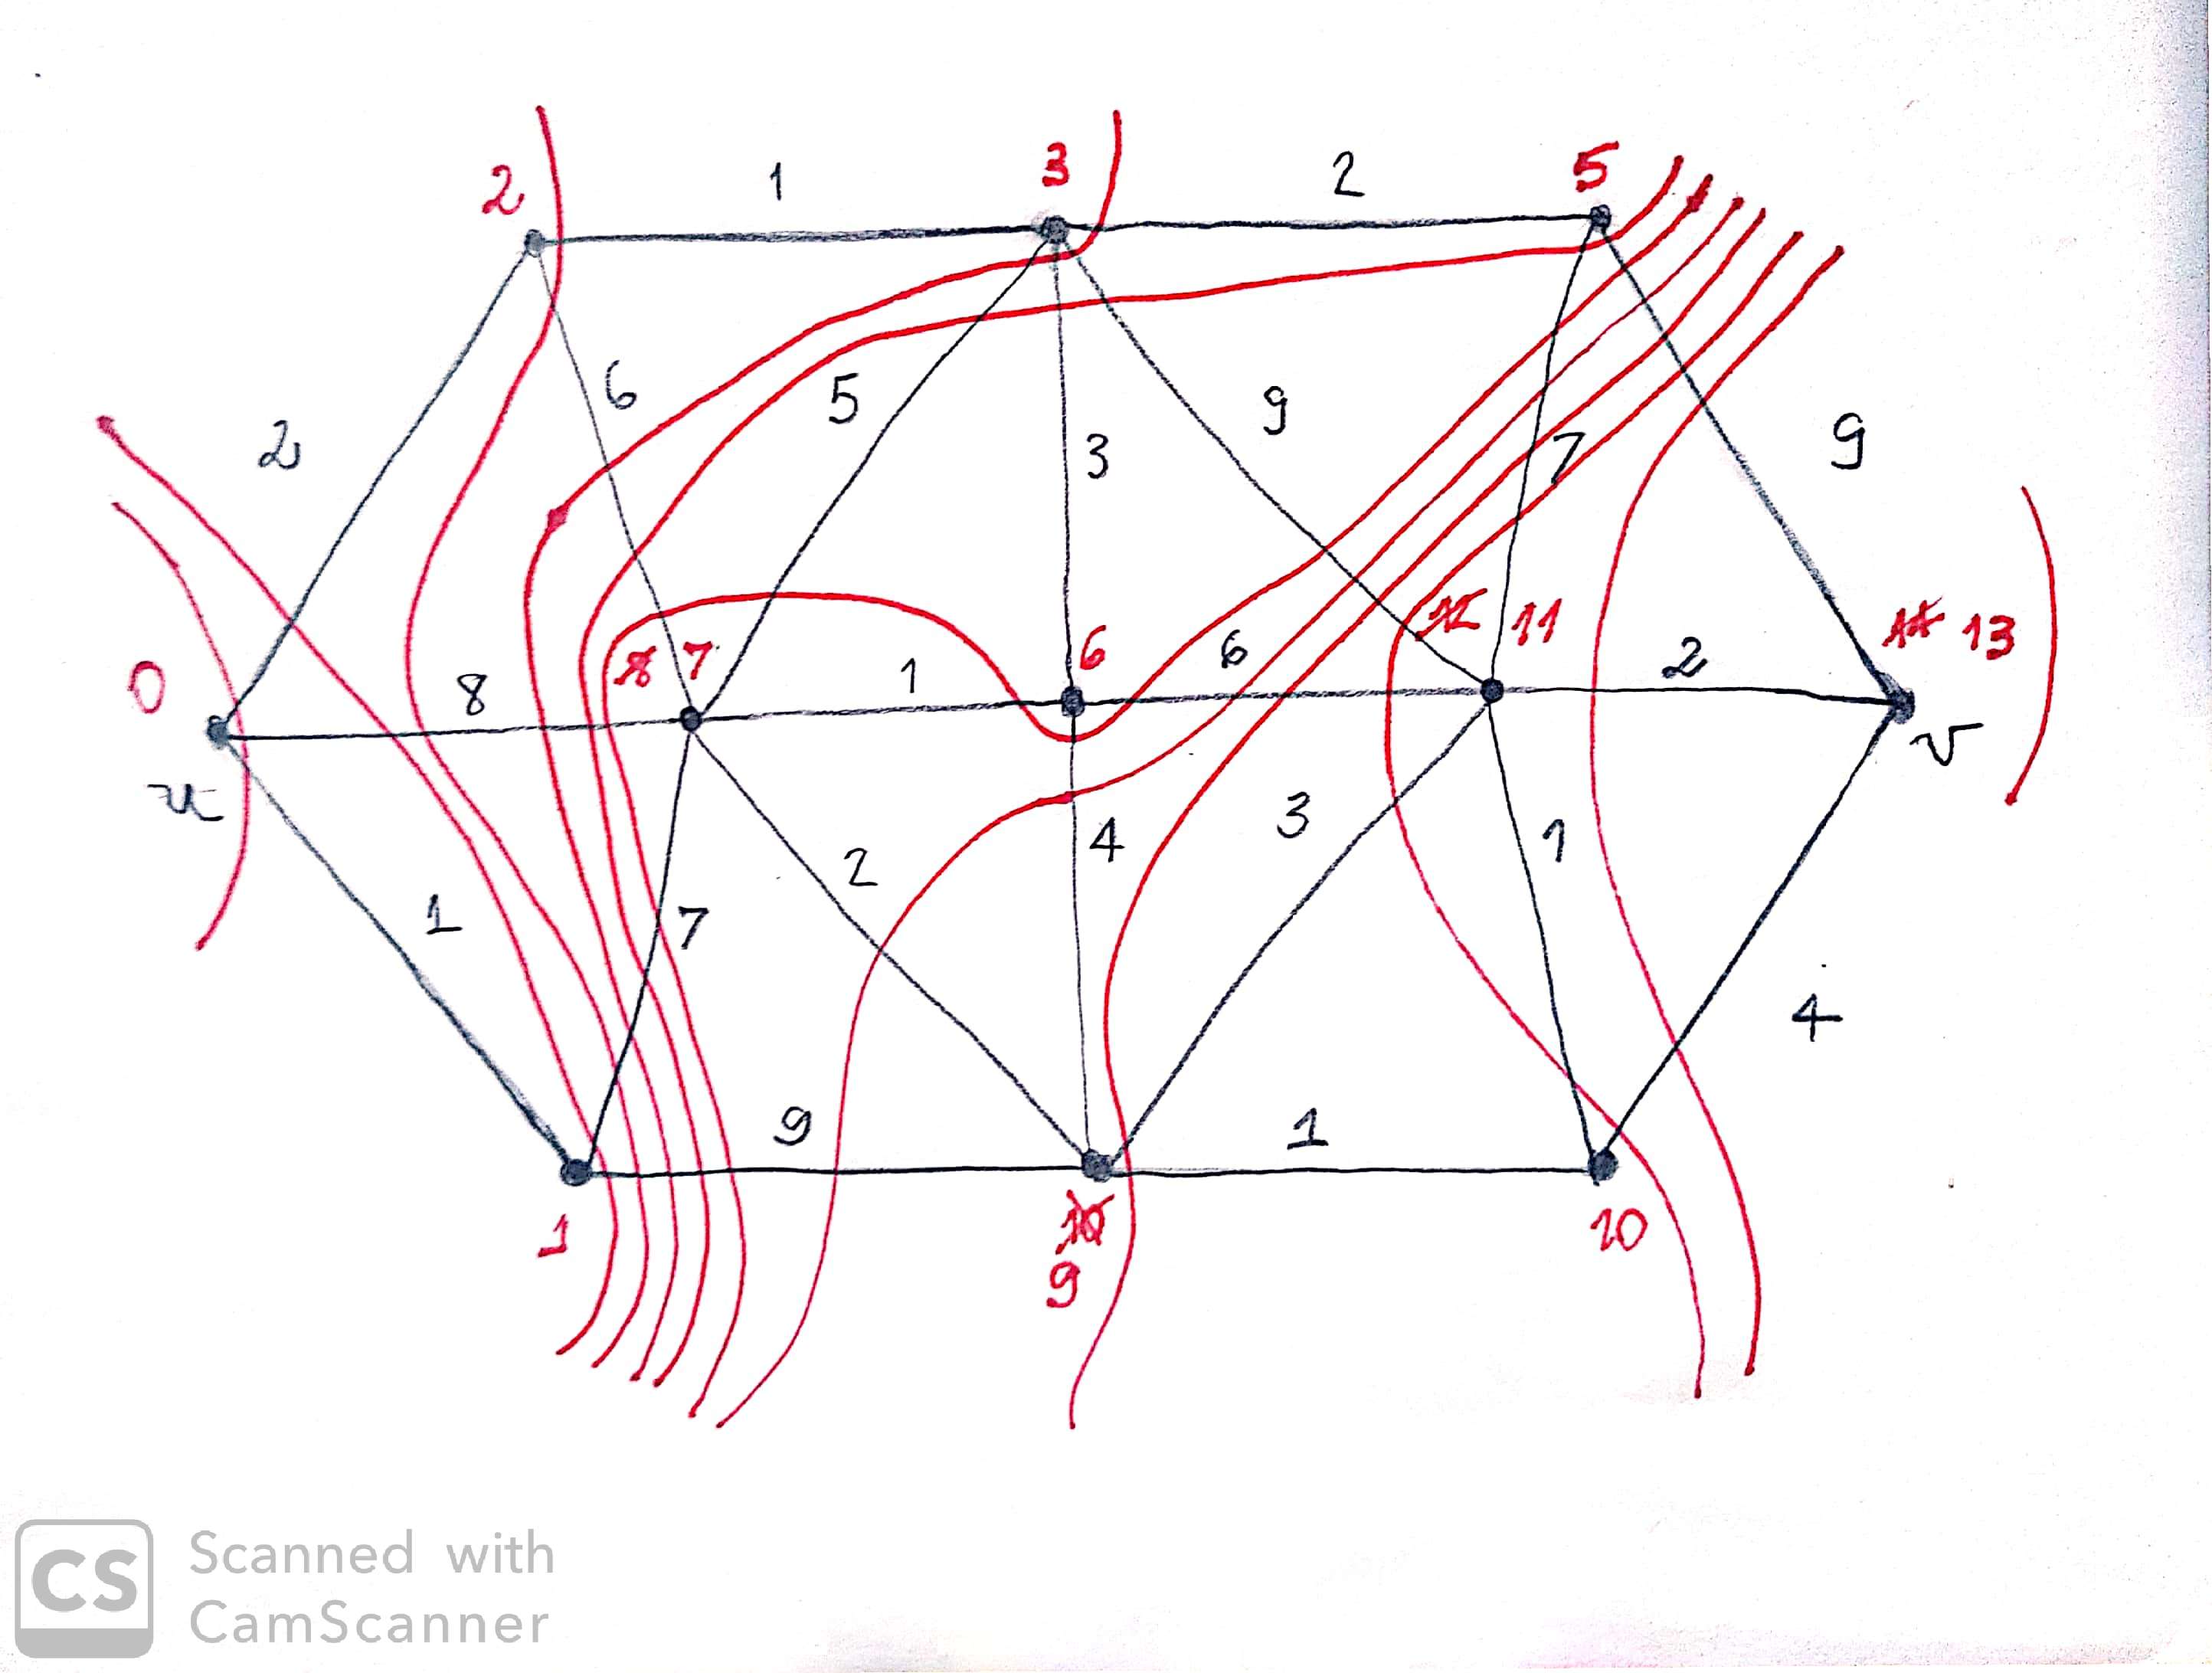 2 1 3 2 5
6 5 9
2 3 7 9
0 8 8 7 1 6 6 12 11 2 14 13
u v
1 7 2 4 3 1
4
9 1
1 10 10
9
CS Scanned with
CamScanner